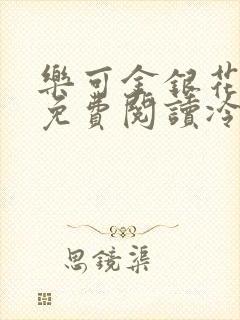 樂可金銀花
免費閱讀冷
思鏡渠